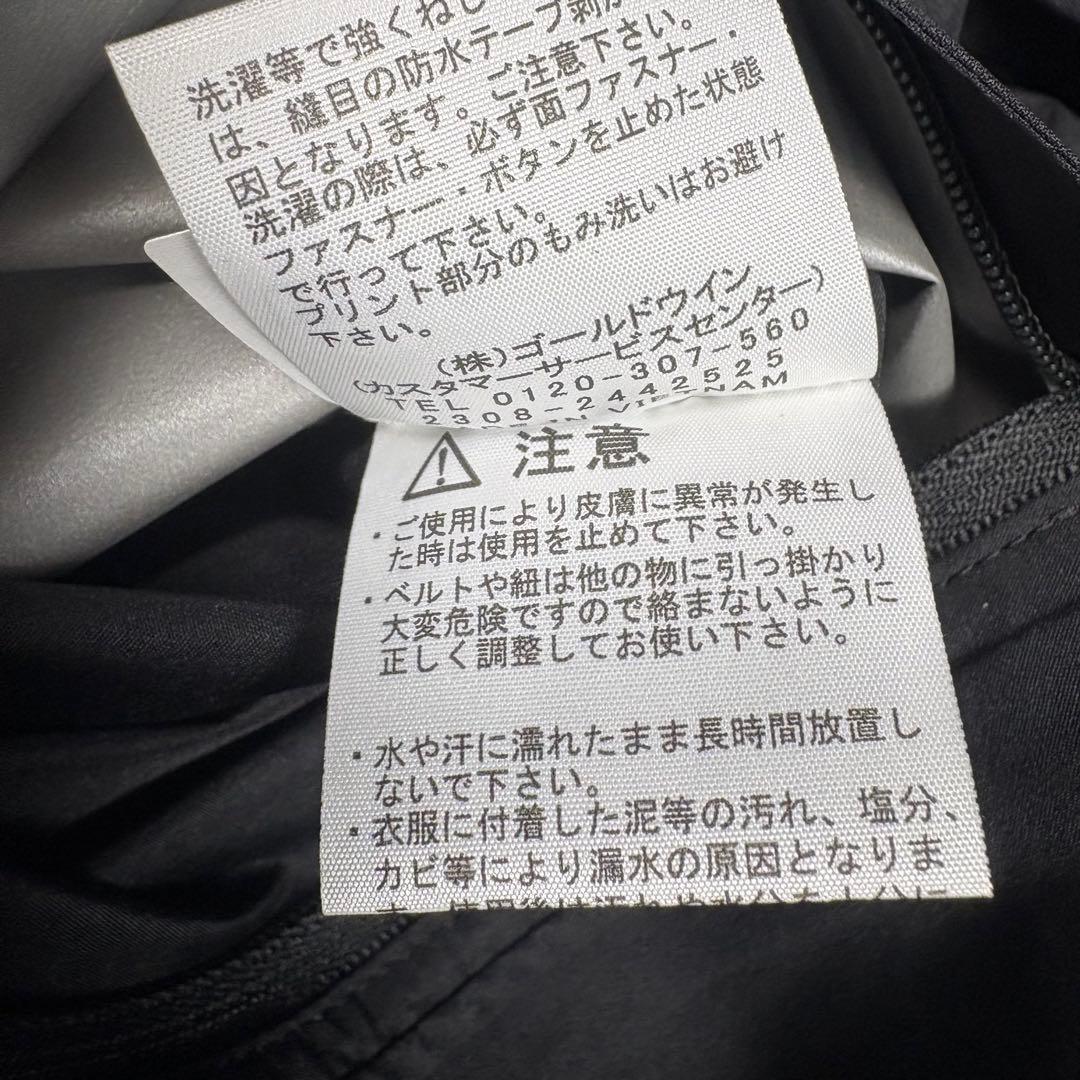 洗濯等で強くねじ
は、縫目の防水テープ剥が
因となります。ご注意下さい。
洗濯の際は、必ず面ファスナー・
ファスナー・ボタンを止めた状態
で行って下さい。
プリント部分のもみ洗いはお避け
下さい。
(株)ゴールドウイン
(カスタマーサービスセンター)
TEL 0120-307-560
2308-2442525
IN VIETNAM
注意
・ご使用により皮膚に異常が発生し
た時は使用を止めて下さい。
・ベルトや紐は他の物に引っ掛かり
大変危険ですので絡まないように
正しく調整してお使い下さい。
・水や汗に濡れたまま長時間放置し
ないで下さい。
・衣服に付着した泥等の汚れ、塩分、
カビ等により漏水の原因となりま
す。使用後は汚れや水分を十分に